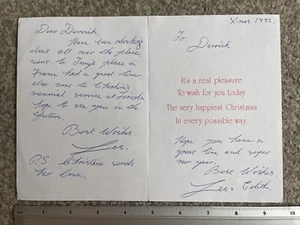 Dear Derrick
Have been
about all over the place
went to Tony's place in
France had a great time
also was to
memory service at Lincoln
hope to see you in the
future.
Best Wishes.
Les.
P.S. Christine sends
her love.
X'mas 1992.
To
Derrick
It's a real pleasure
To wish for you today
The very happiest Christmas
In every possible way.
Hope you have a
great time and super
new year.
Best Wishes
Les
1 2 3 4 5 6 7 8 9 10